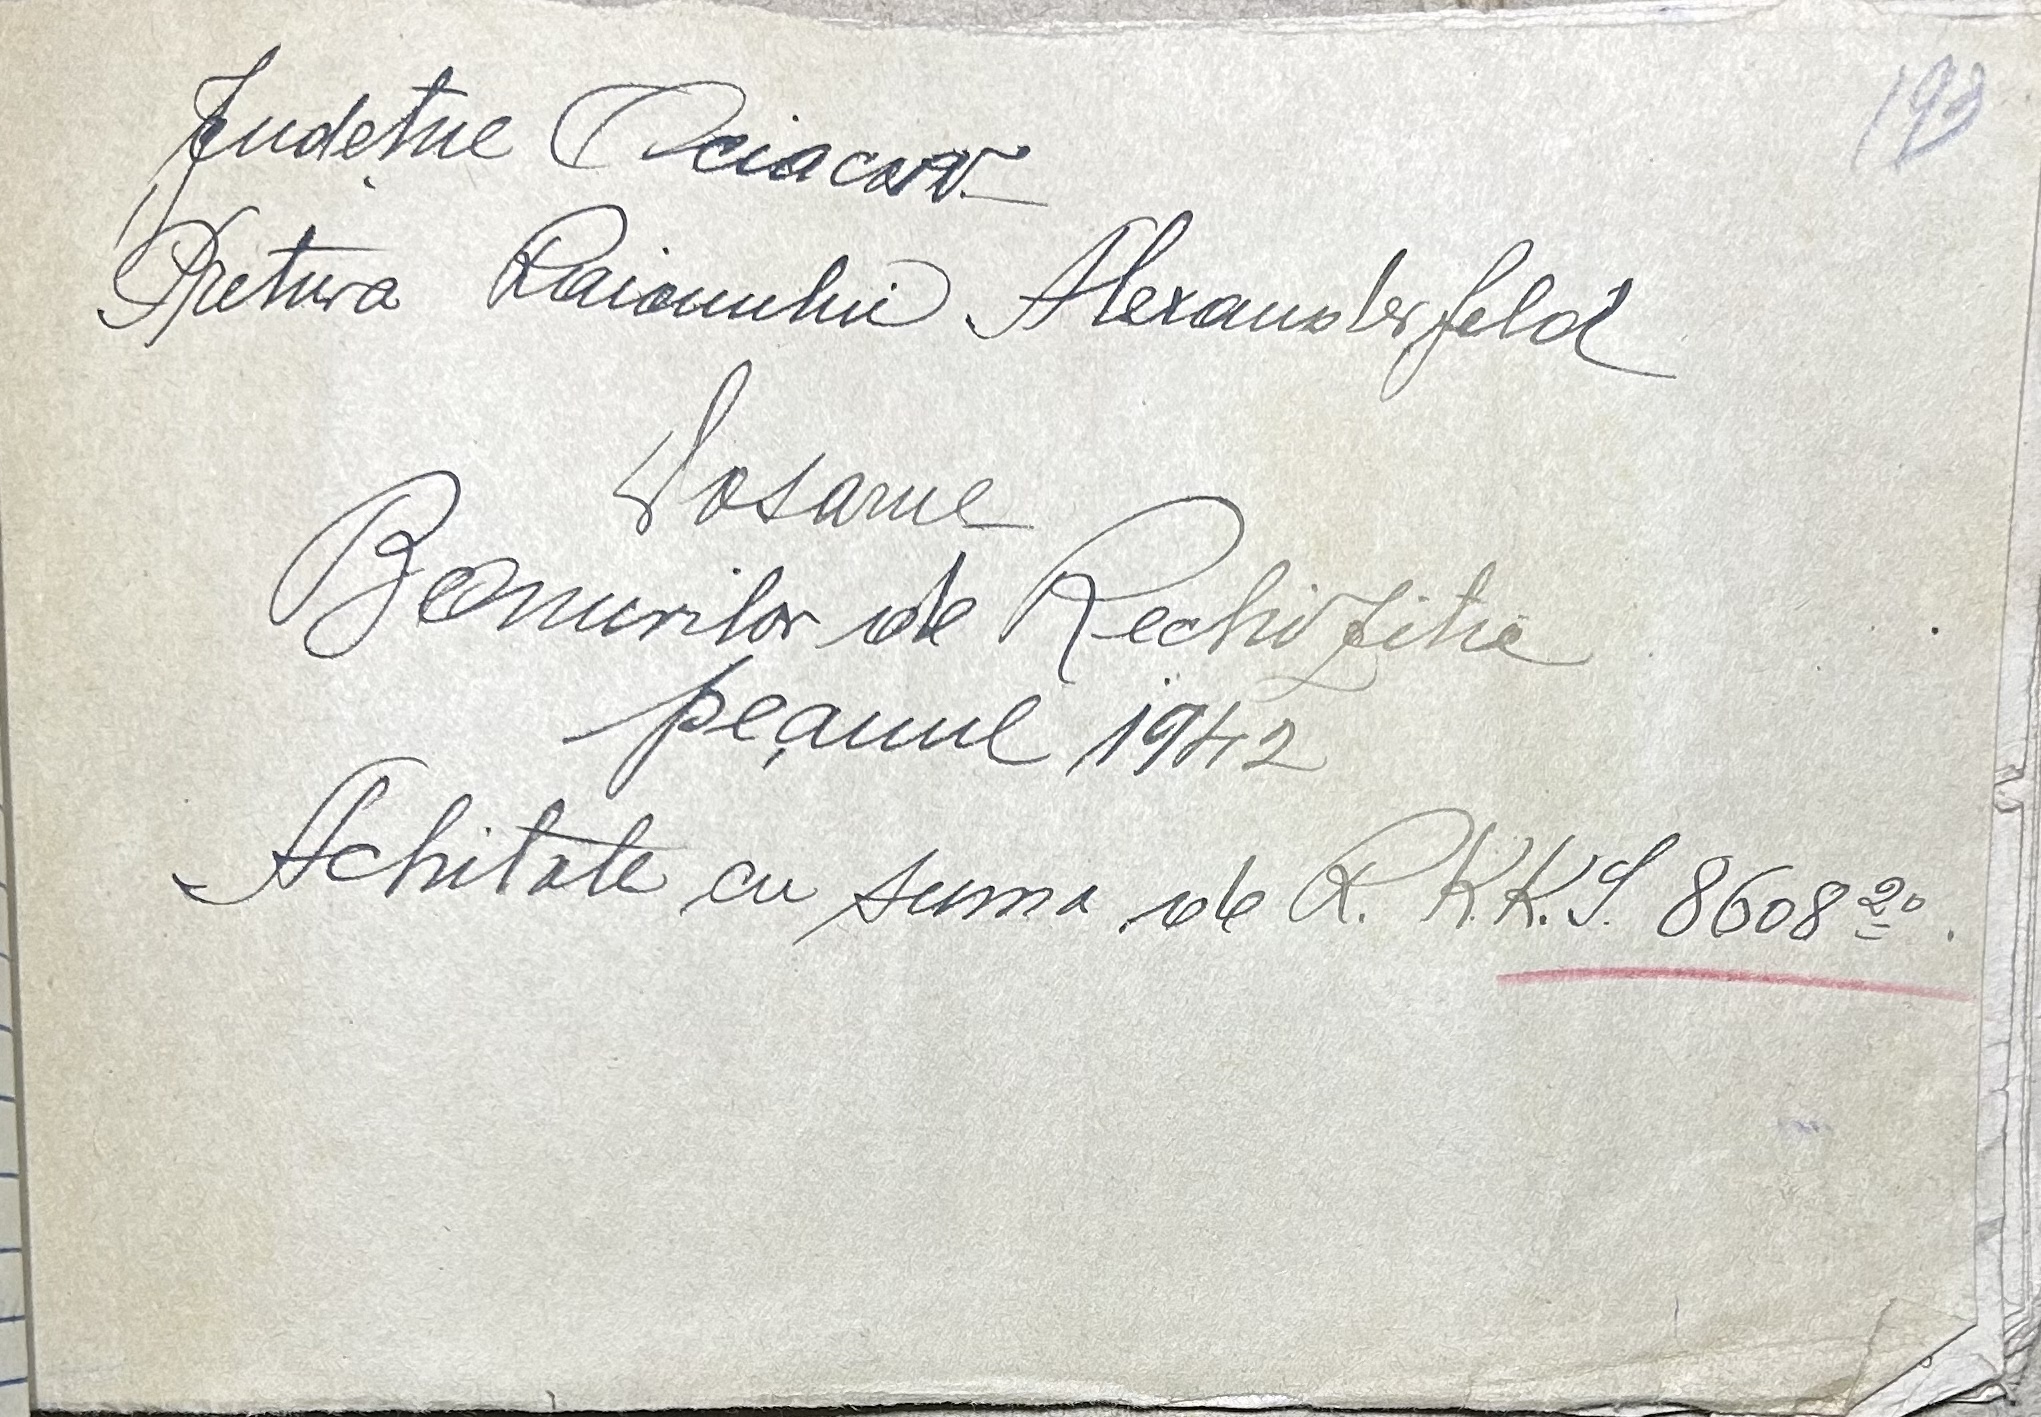 193
Județul Oceacov
Pretura Raionului Alexanderfeld
Dosarul
Bonurilor de Rechiziție
pe anul 1942
Achitate cu suma de R.K.K.S. 8608 20.